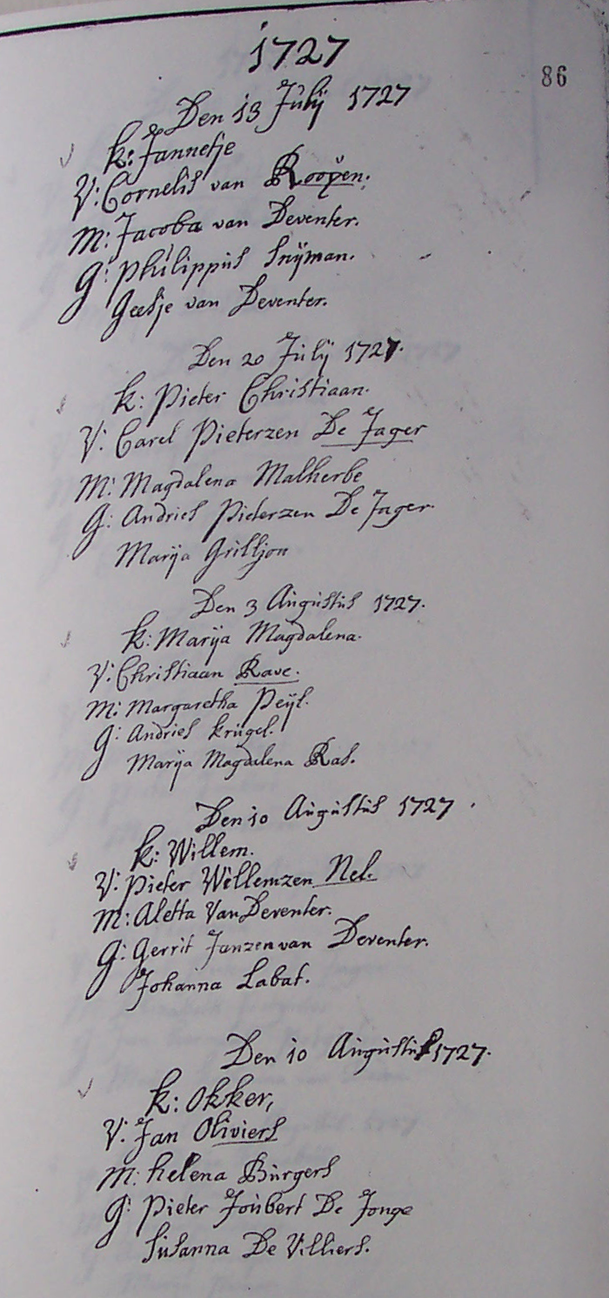 1727
86
Den 13 Julij 1727
k: Jannetje
V: Cornelis van Rooÿen.
M: Jacoba van Deventer.
G: Philippus Snÿman.
Geesje van Deventer.
Den 20 Julij 1727.
k: Pieter Christiaan.
V: Carel Pieterzen De Jager
M: Magdalena Malherbe
G: Andries Pieterzen De Jager.
Marija Grilljon
Den 3 Augustus 1727.
k: Marija Magdalena.
V: Christiaan Rave.
M: Margaretha Peÿl.
G: Andries krugel.
Marija Magdalena Ras.
Den 10 Augustus 1727
k: Willem.
V: Pieter Willemzen Nel.
M: Aletta Van Deventer.
G: Gerrit Janzen van Deventer.
Johanna Labat.
Den 10 Augustus 1727.
k: Okker,
V. Jan Oliviers
M: helena Burgers
G: Pieter Joubert De Jonge
Susanna De Villiers.